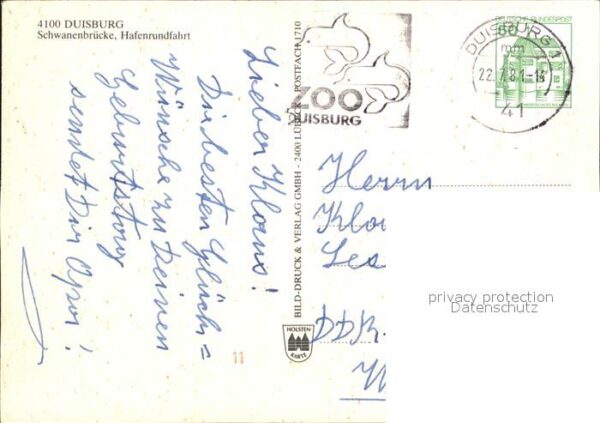 4100 DUISBURG
Schwanenbrücke, Hafenrundfahrt
Lieber Klaus!
Die besten Glück=
Wünsche zu Deinen
Geburtstag
sendet Dir Opa!
BILD-DRUCK & VERLAG GMBH - 2400 LÜBECK - POSTFACH 1710
HOLSTEN
KARTE
11
ZOO
DUISBURG
DEUTSCHE BUNDESPOST
60
DUISBURG 1
mm
22.7.81-14
41
Herrn
Klau
privacy protection
Datenschutz